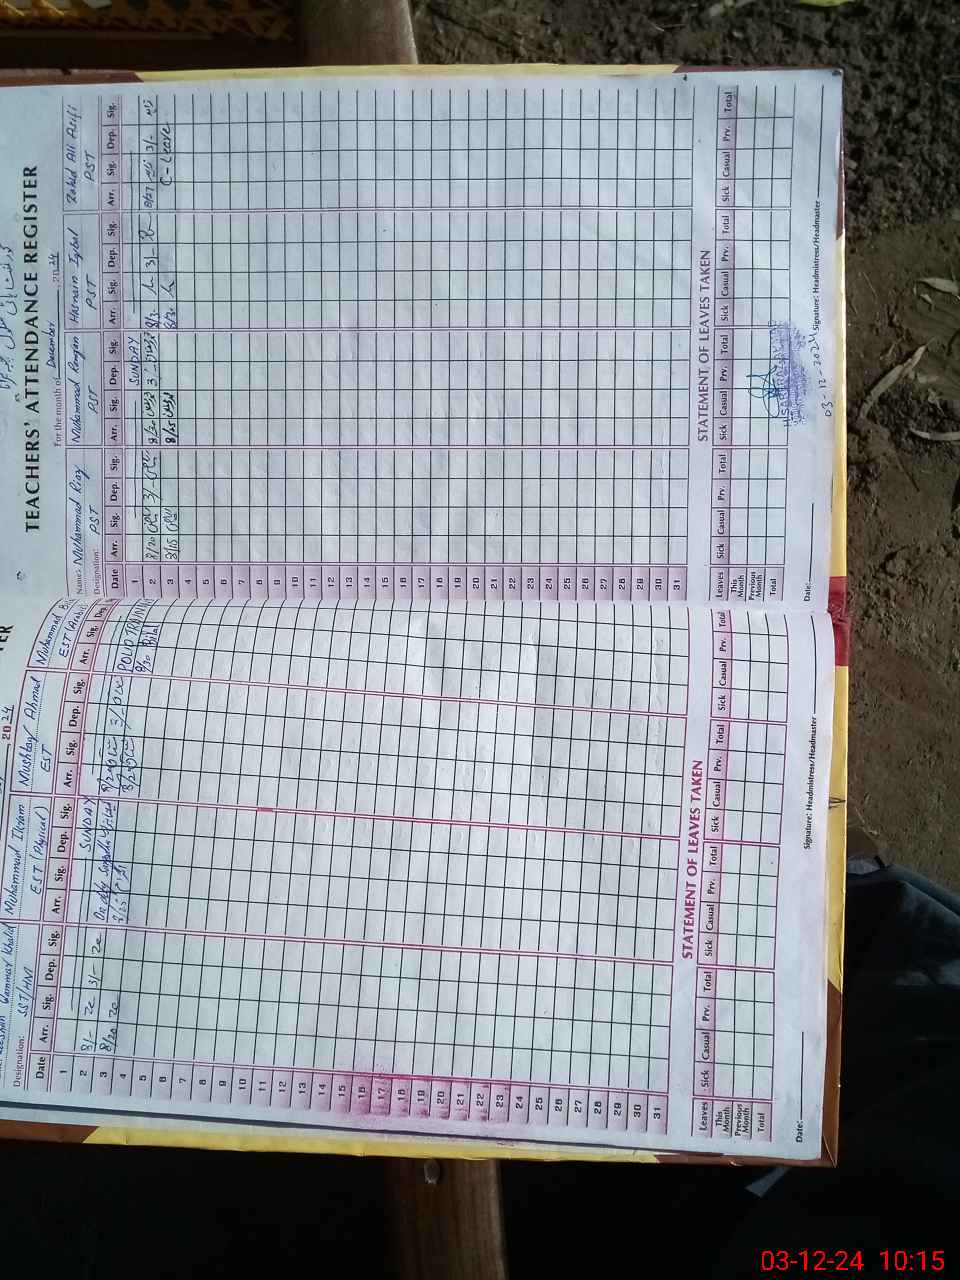 TEACHERS' ATTENDANCE REGISTER
For the month of December, 2024
Name: Muhammad Riaz Muhammad Ramzan Hasnain Iqbal Zahid Ali Asifi
Designation: PST PST PST PST
Date Arr. Sig. Dep. Sig. Arr. Sig. Dep. Sig. Arr. Sig. Dep. Sig. Arr. Sig. Dep. Sig.
1 SUNDAY
2 8/20 3/- 8/20 3/- 8/30 3/- 8/27 3/-
3 8/15 8/25 8/30 C-Leave
4
5
6
7
8
9
10
11
12
13
14
15
16
17
18
19
20
21
22
23
24
25
26
27
28
29
30
31
STATEMENT OF LEAVES TAKEN
Leaves Sick Casual Prv. Total Sick Casual Prv. Total Sick Casual Prv. Total Sick Casual Prv. Total
This Month
Previous Month
Total
03-12-2024
Date: Signature: Headmistress/Headmaster
, 2024
Qammar Khalid Muhammad Ikram Mushtaq Ahmad Muhammad
Designation: SST/HM EST (Physical) EST EST (Arabic
Date Arr. Sig. Dep. Sig. Arr. Sig. Dep. Sig. Arr. Sig. Dep. Sig. Arr. Sig. Dep.
1 SUNDAY
2 8/- 3/- On duty 8/20 3/- POLIO TRAINING
3 8/20 8/25 8/20 8/20 Bilal
4
5
6
7
8
9
10
11
12
13
14
15
16
17
18
19
20
21
22
23
24
25
26
27
28
29
30
31
STATEMENT OF LEAVES TAKEN
Leaves Sick Casual Prv. Total Sick Casual Prv. Total Sick Casual Prv. Total Sick Casual Prv. Total
This Month
Previous Month
Total
Date: Signature: Headmistress/Headmaster
03-12-24 10:15